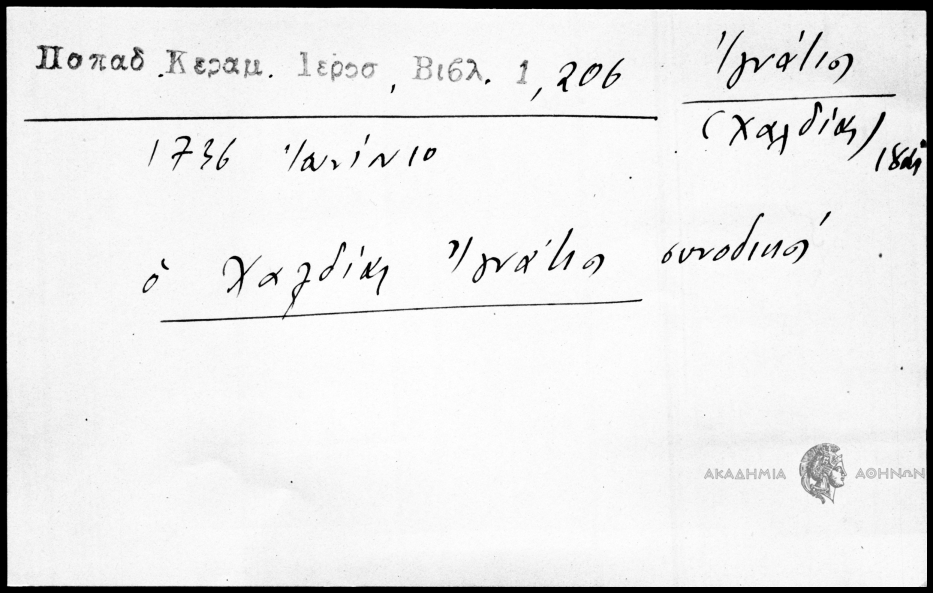 Παπαδ. Κεραμ. Ιεροσ, Βιβλ. 1, 206
Ἰγνάτιος
(Χαλδίας)
18ος
1736 Ἰουνίου
ὁ Χαλδίας Ἰγνάτιος συνοδικός
ΑΚΑΔΗΜΙΑ ΑΘΗΝΩΝ